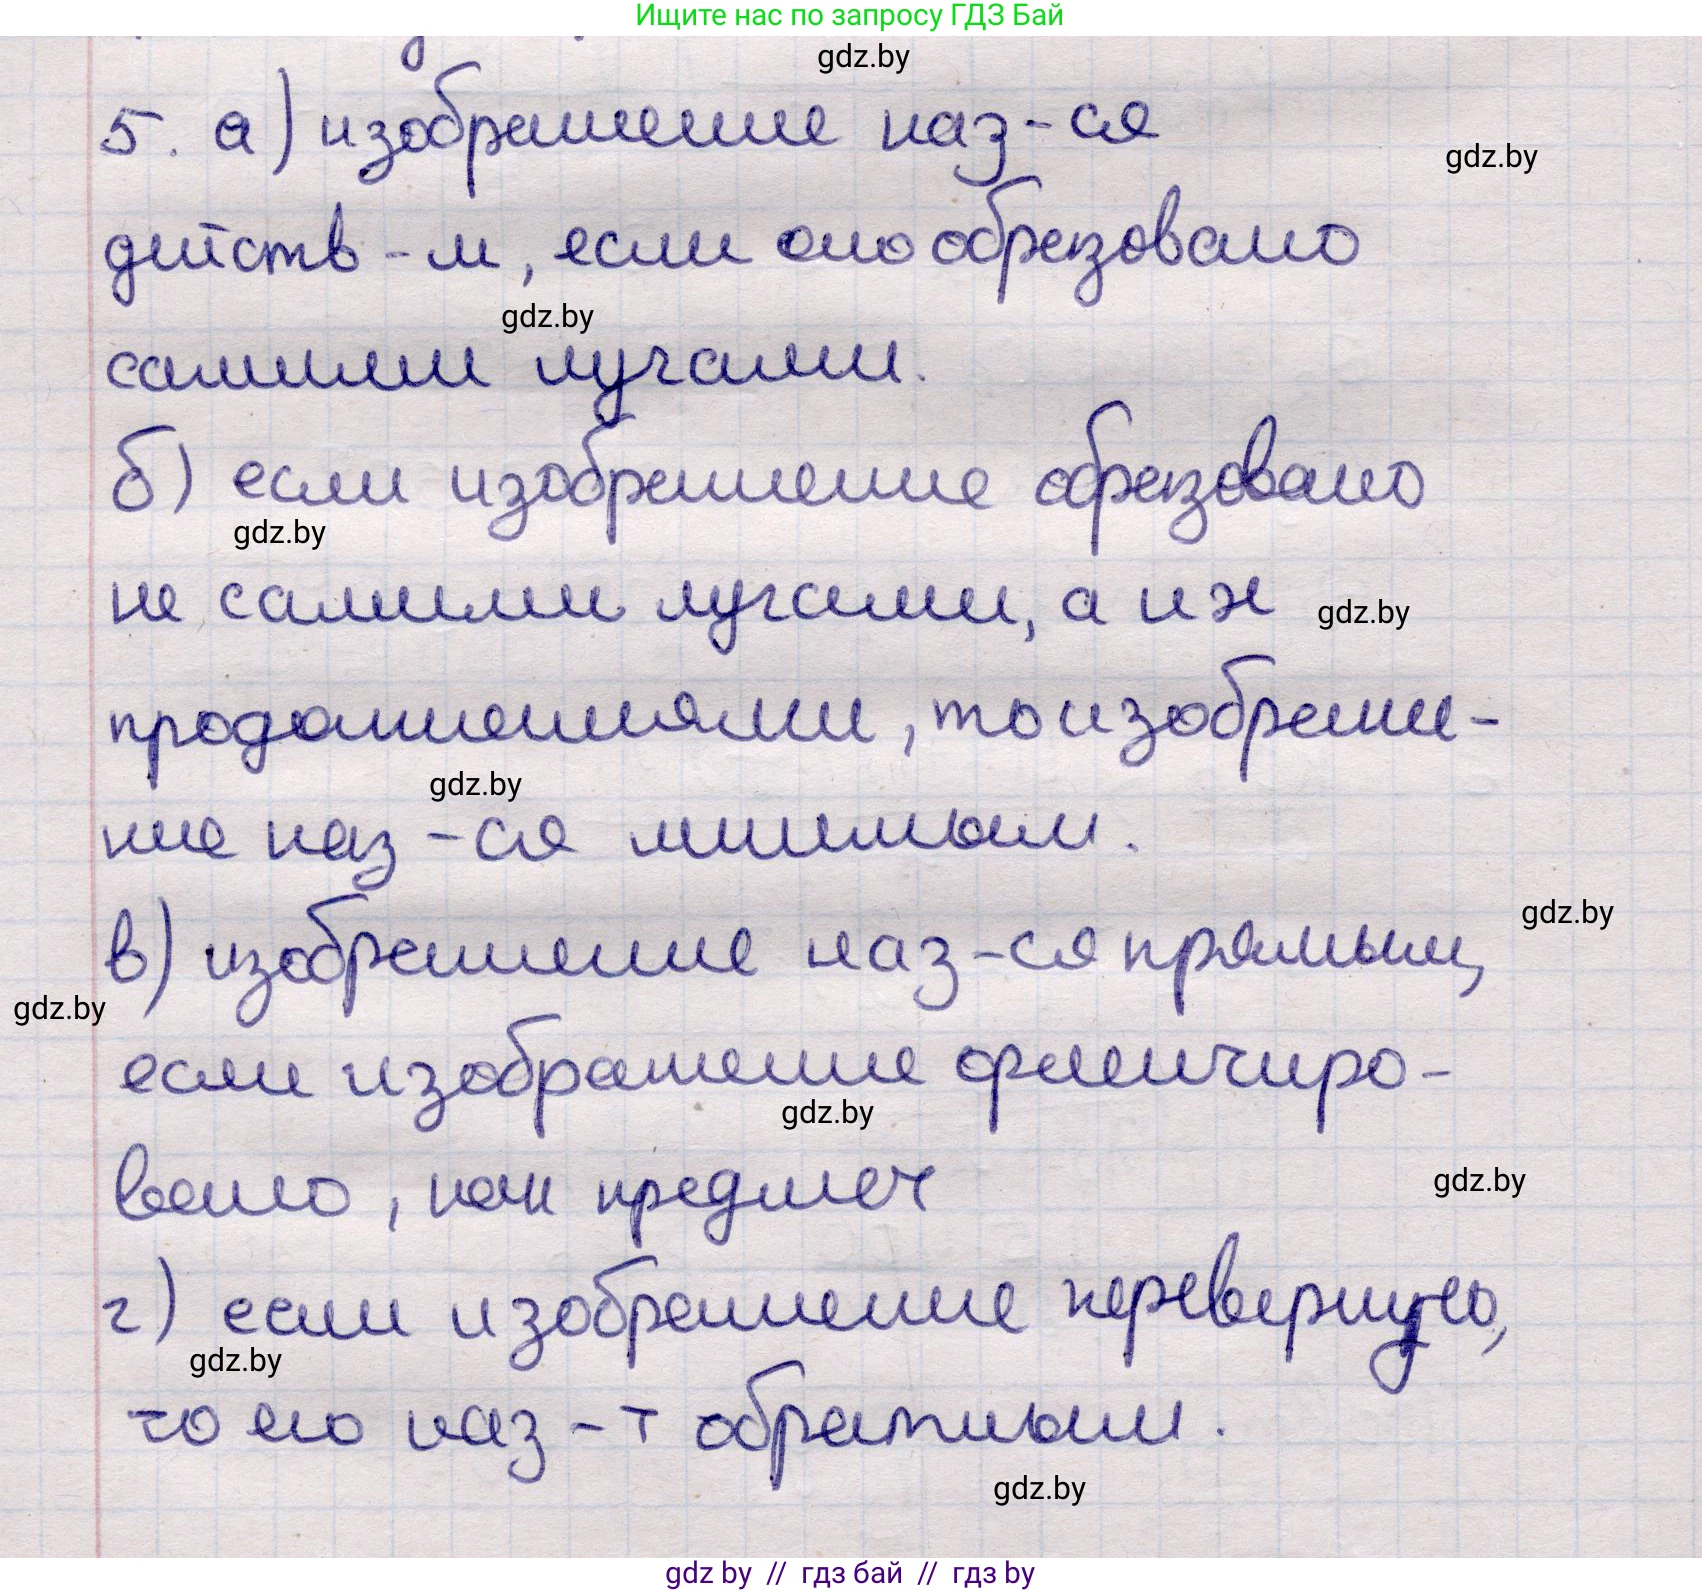 Ищите нас по запросу ГДЗ Бай
gdz.by
5. а) изображение наз-ся
gdz.by
действ-м, если оно образовано
gdz.by
самими лучами.
б) если изображение образовано
gdz.by
не самими лучами, а их
gdz.by
продолжениями, то изображе-
gdz.by
ние наз-ся мнимым.
gdz.by
в) изображение наз-ся прямым,
gdz.by
если изображение
gdz.by
вано, как предмет
gdz.by
г) если изображение перевернуто,
gdz.by
то его наз-т обратным.
gdz.by
gdz by // гдз бай // гдз by